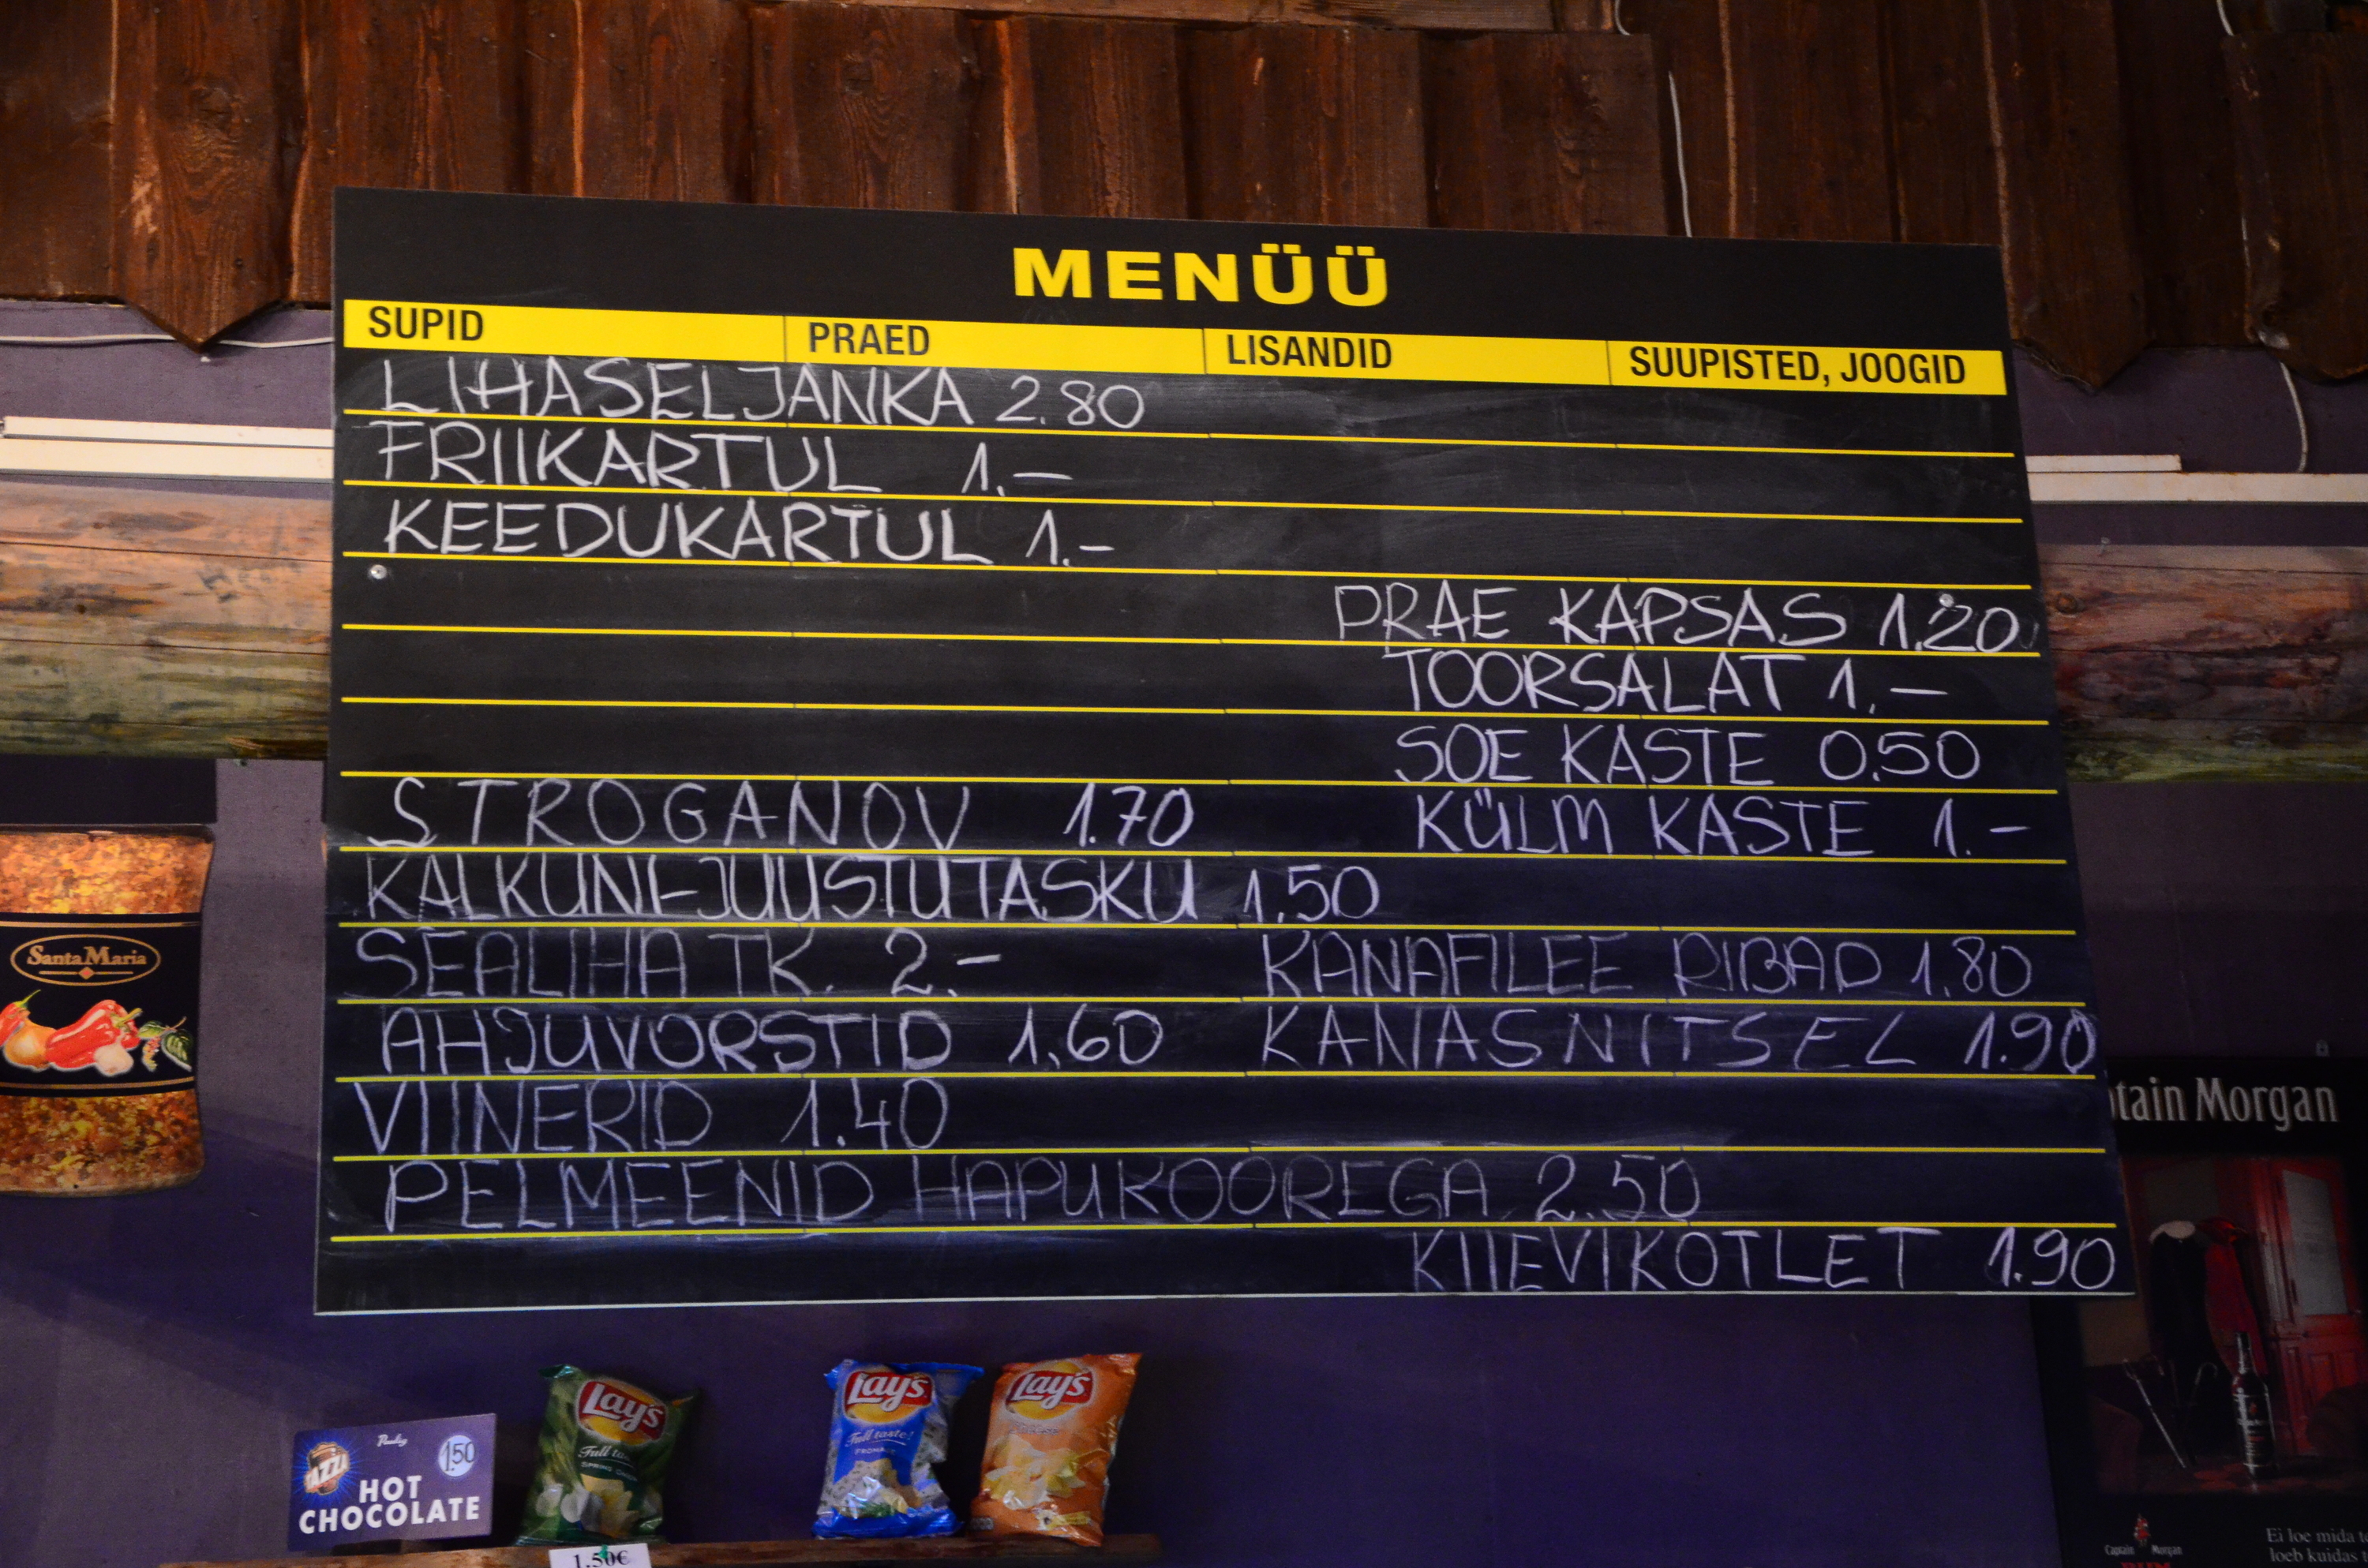 MENÜÜ
SUPID PRAED LISANDID SUUPISTED, JOOGID
LIHASELJANKA 2.80
FRIIKARTUL 1.—
KEEDUKARTUL 1.-
PRAE KAPSAS 1.20
TOORSALAT 1.—
SOE KASTE 0.50
STROGANOV 1.70 KÜLM KASTE 1.-
KALKUNI-JUUSTUTASKU 1.50
SEALIHA TK. 2.- KANAFILEE RIBAD 1.80
AHJUVORSTID 1.60 KANASNITSEL 1.90
VIINERID 1.40
PELMEENID HAPUKOOREGA 2.50
KIIEVIKOTLET 1.90
Santa Maria
tain Morgan
Paulig
TAZZA
1.50
HOT
CHOCOLATE
Lay's
Full
SPRING
Lay's
Full taste!
FROMAGE
Lay's
1.50€
Captain Morgan
RUM
Ei loe mida
loeb kuidas